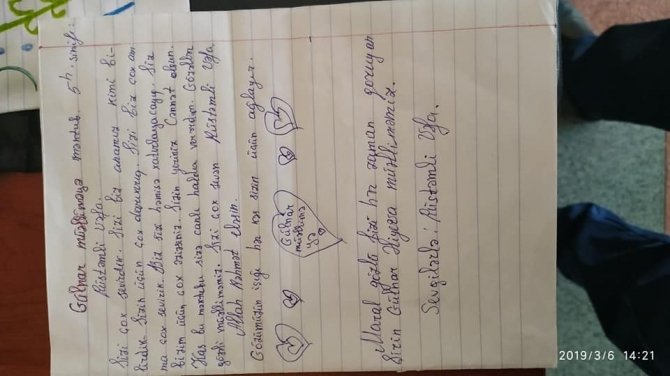 Gülnar müəlliməyə məktub. 5ʰ sinifi:
Rüstəmli Vəfa.
Sizi çox sevirdik. Sizi biz anamız kimi bi-
lirdik. Sizin üçün çox darıxırıq. Sizi biz çox am
ma çox sevirik. Biz sizi həmişə xatırlayacayıq. Siz
bizim üçün çox əzizsiniz. Sizin yeriniz Cənnət olsun.
Kaş bu məktubu sizə canlı halda verərdim. Gözəllər
gözəli müəlliməmiz. Sizi çox sevən Rüstəmli Vəfa
Allah Rəhmət eləsin.
Gözümüzün işığı hər kəs sizin üçün ağlayır.
Gülnar
müəllimə
yə
Maral gözlü bizi hər zaman qoruyan
Şirin Gülnar Əliyeva müəlliməmiz.
Sevgilərlə: Rüstəmli Vəfa.
2019/3/6 14:21